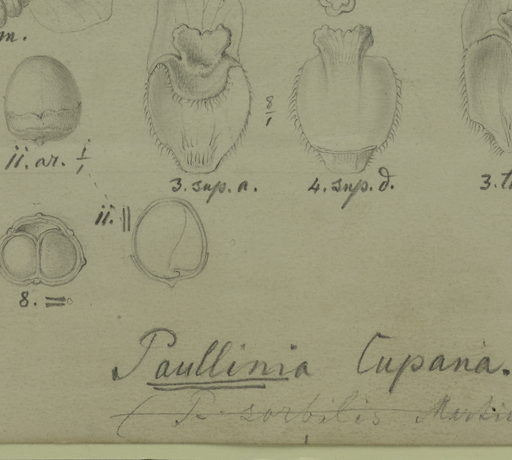 m.
ii. ar. 1/1
8/1
3. sup. a.
4. sup. d.
3. t
ii. ||
8. =
Paullinia Cupana.
( P. sorbilis Marti